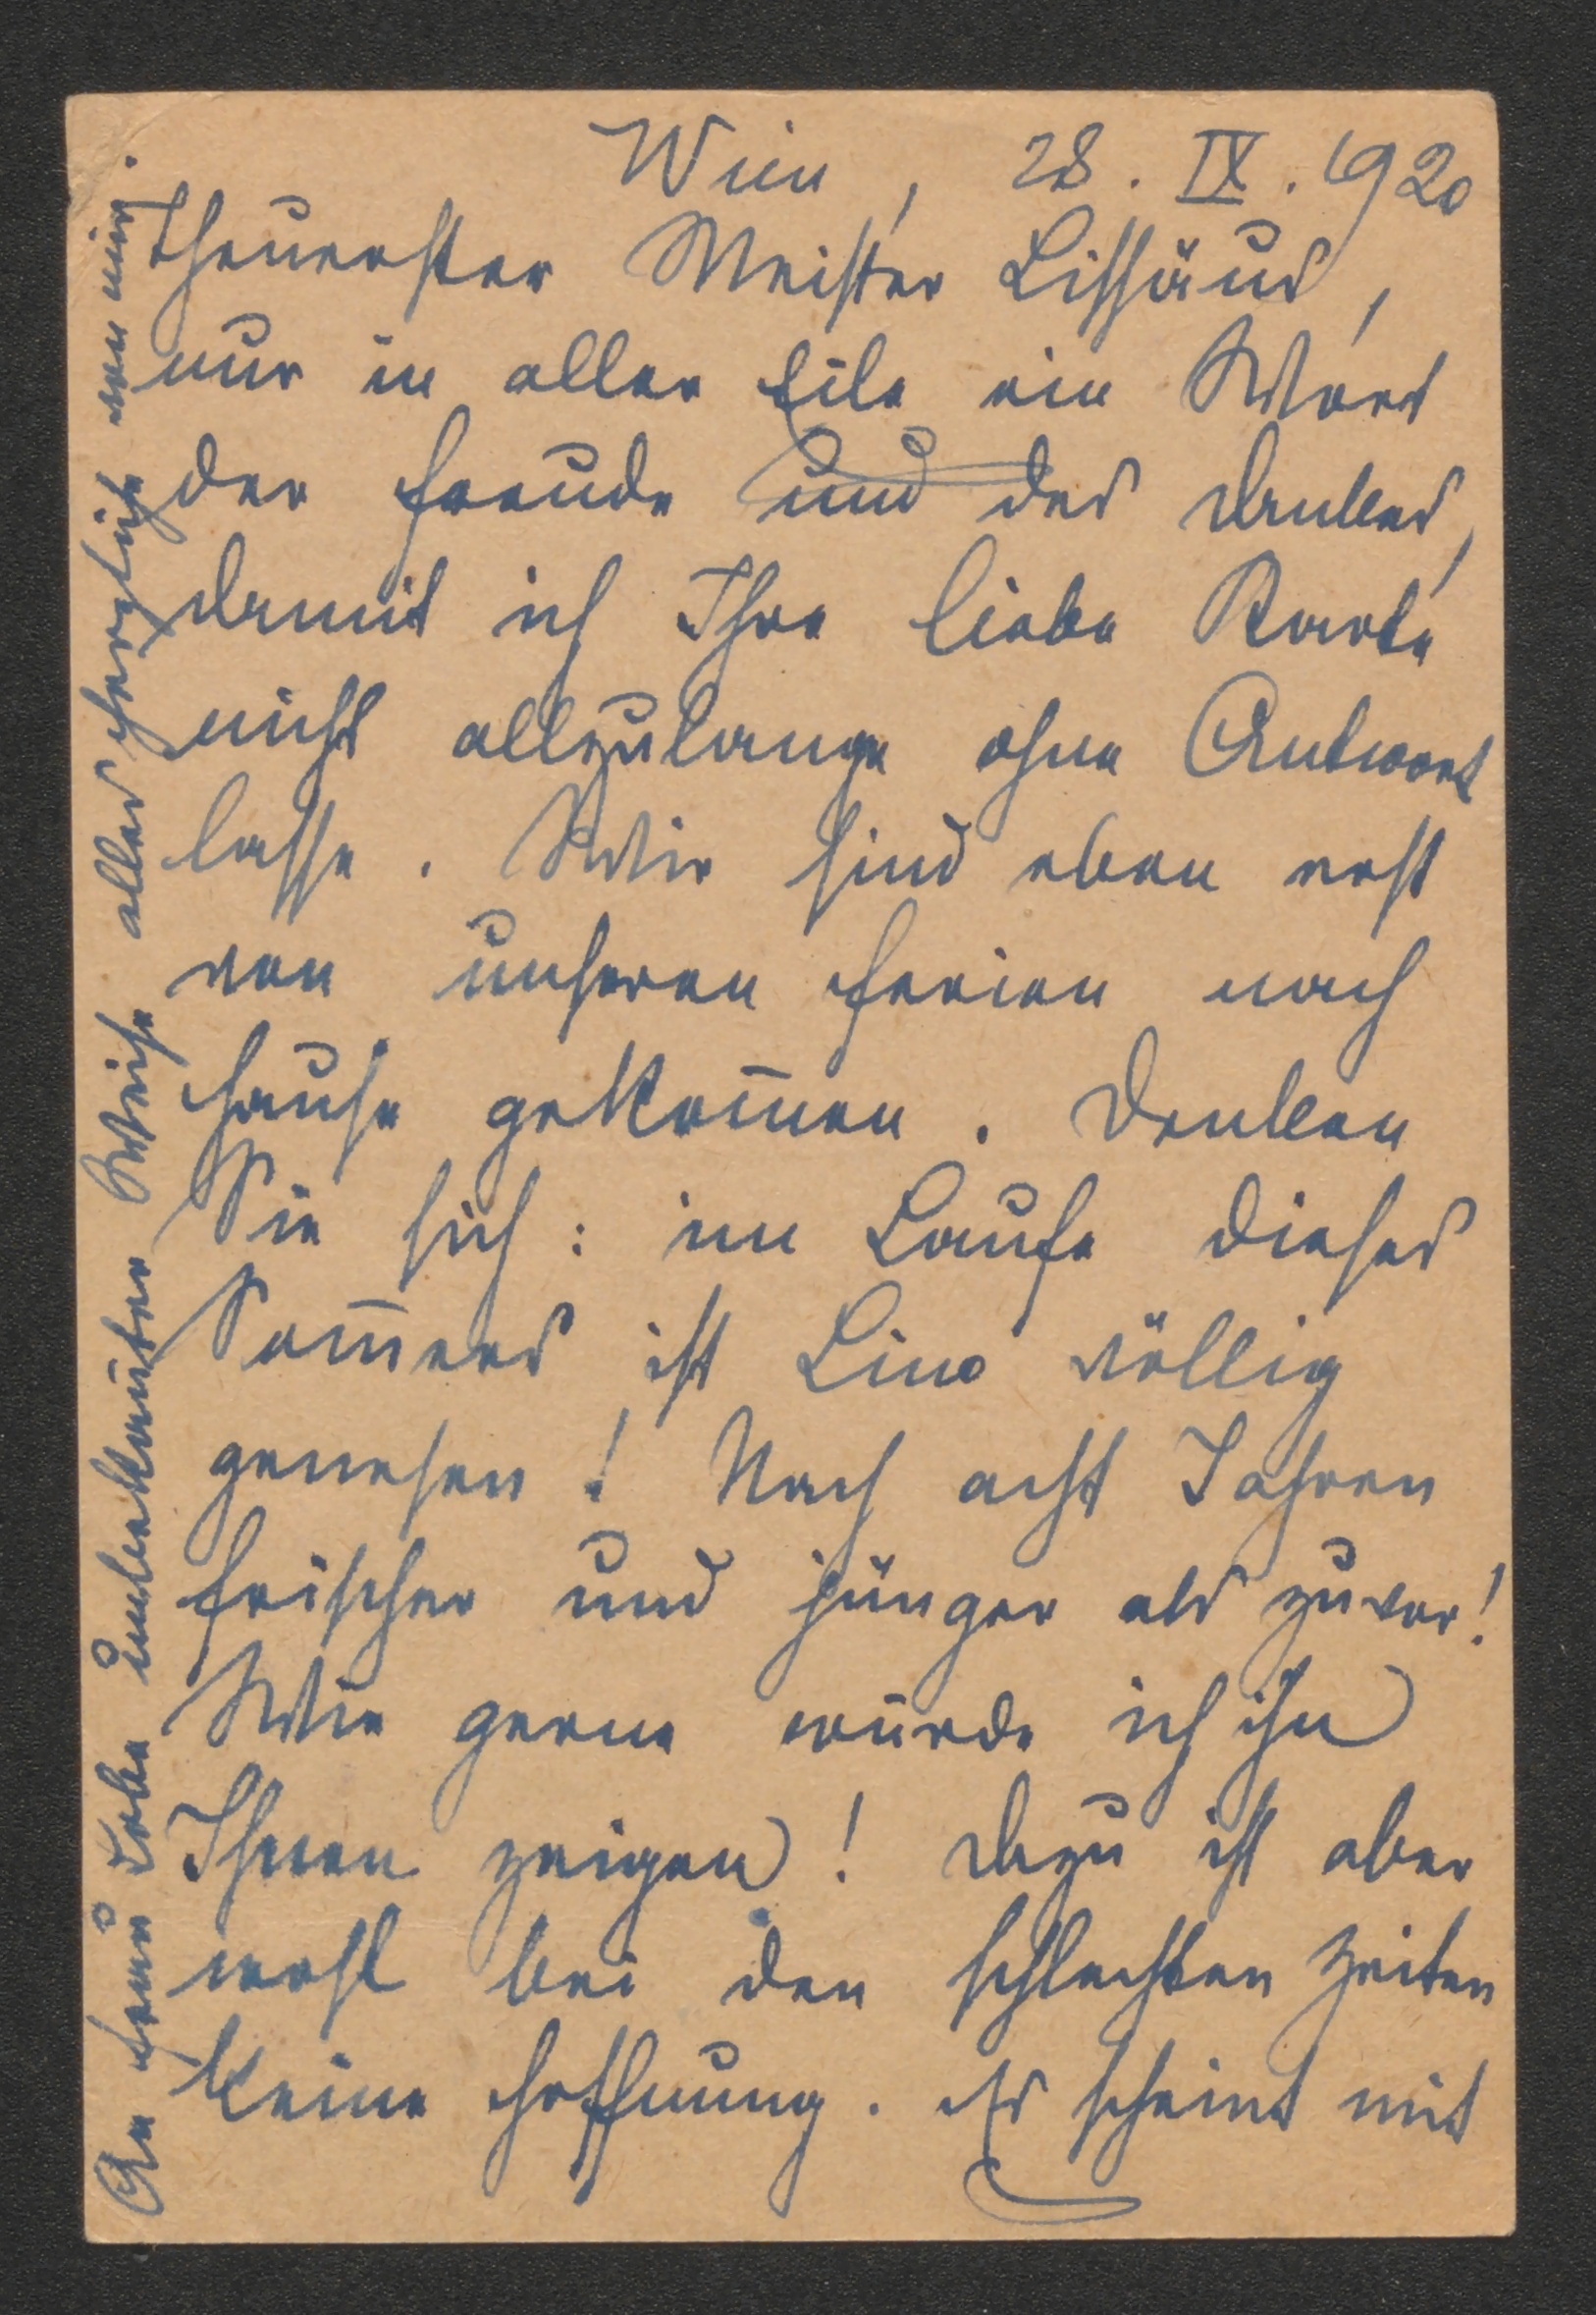 Wien, 28. IX. 1920
Theuerster Meister Lissauer,
nur in aller Eile ein Wort
der Freude und des Dankes,
damit ich Ihre liebe Karte
nicht allzulange ohne Antwort
lasse. Wir sind eben erst
von unseren Ferien nach
Hause gekom̅en. Denken
Sie sich: im Laufe dieses
Som̅ers ist Lino völlig
genesen! Nach acht Jahren
frischer und jünger als zuvor!
Wie gerne würde ich ihn
Ihnen zeigen! Dazu ist aber
wohl bei den schlechten Zeiten
keine Hoffnung. Es scheint mit
An Frau unbekan̅ter Weise alles Herzliche von mir.